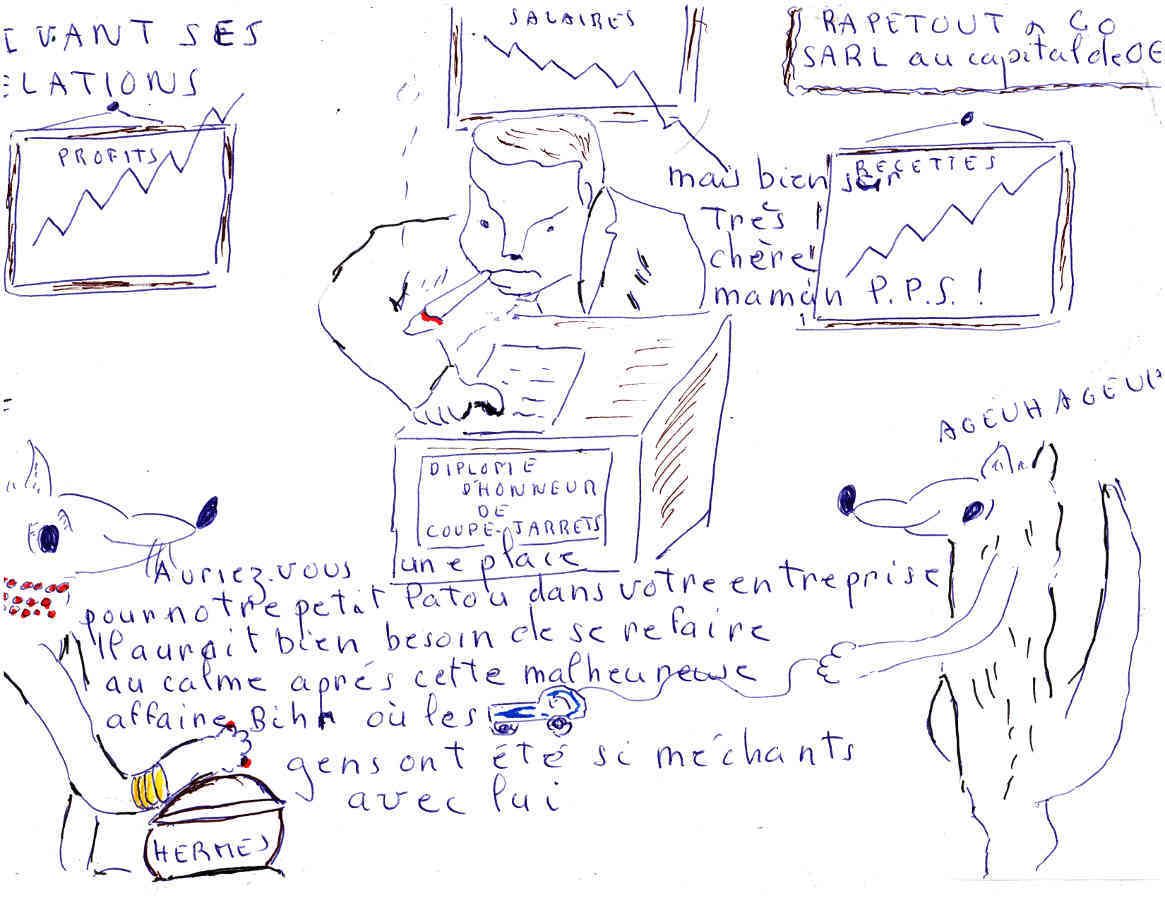 IVANT SES
ELATIONS
SALAIRES
RAPETOUT & CO
SARL au capital de 0E
PROFITS
RECETTES
mais bien sûr
Très
chère
maman P.P.S. !
AGEUHAGEUH
DIPLOME
D'HONNEUR
DE
COUPE-JARRETS
Auriez-vous une place
pour notre petit Patou dans votre entreprise
Il aurait bien besoin de se refaire
au calme aprés cette malheureuse
affaire Bihr où les
gens ont été si méchants
avec lui
HERMES